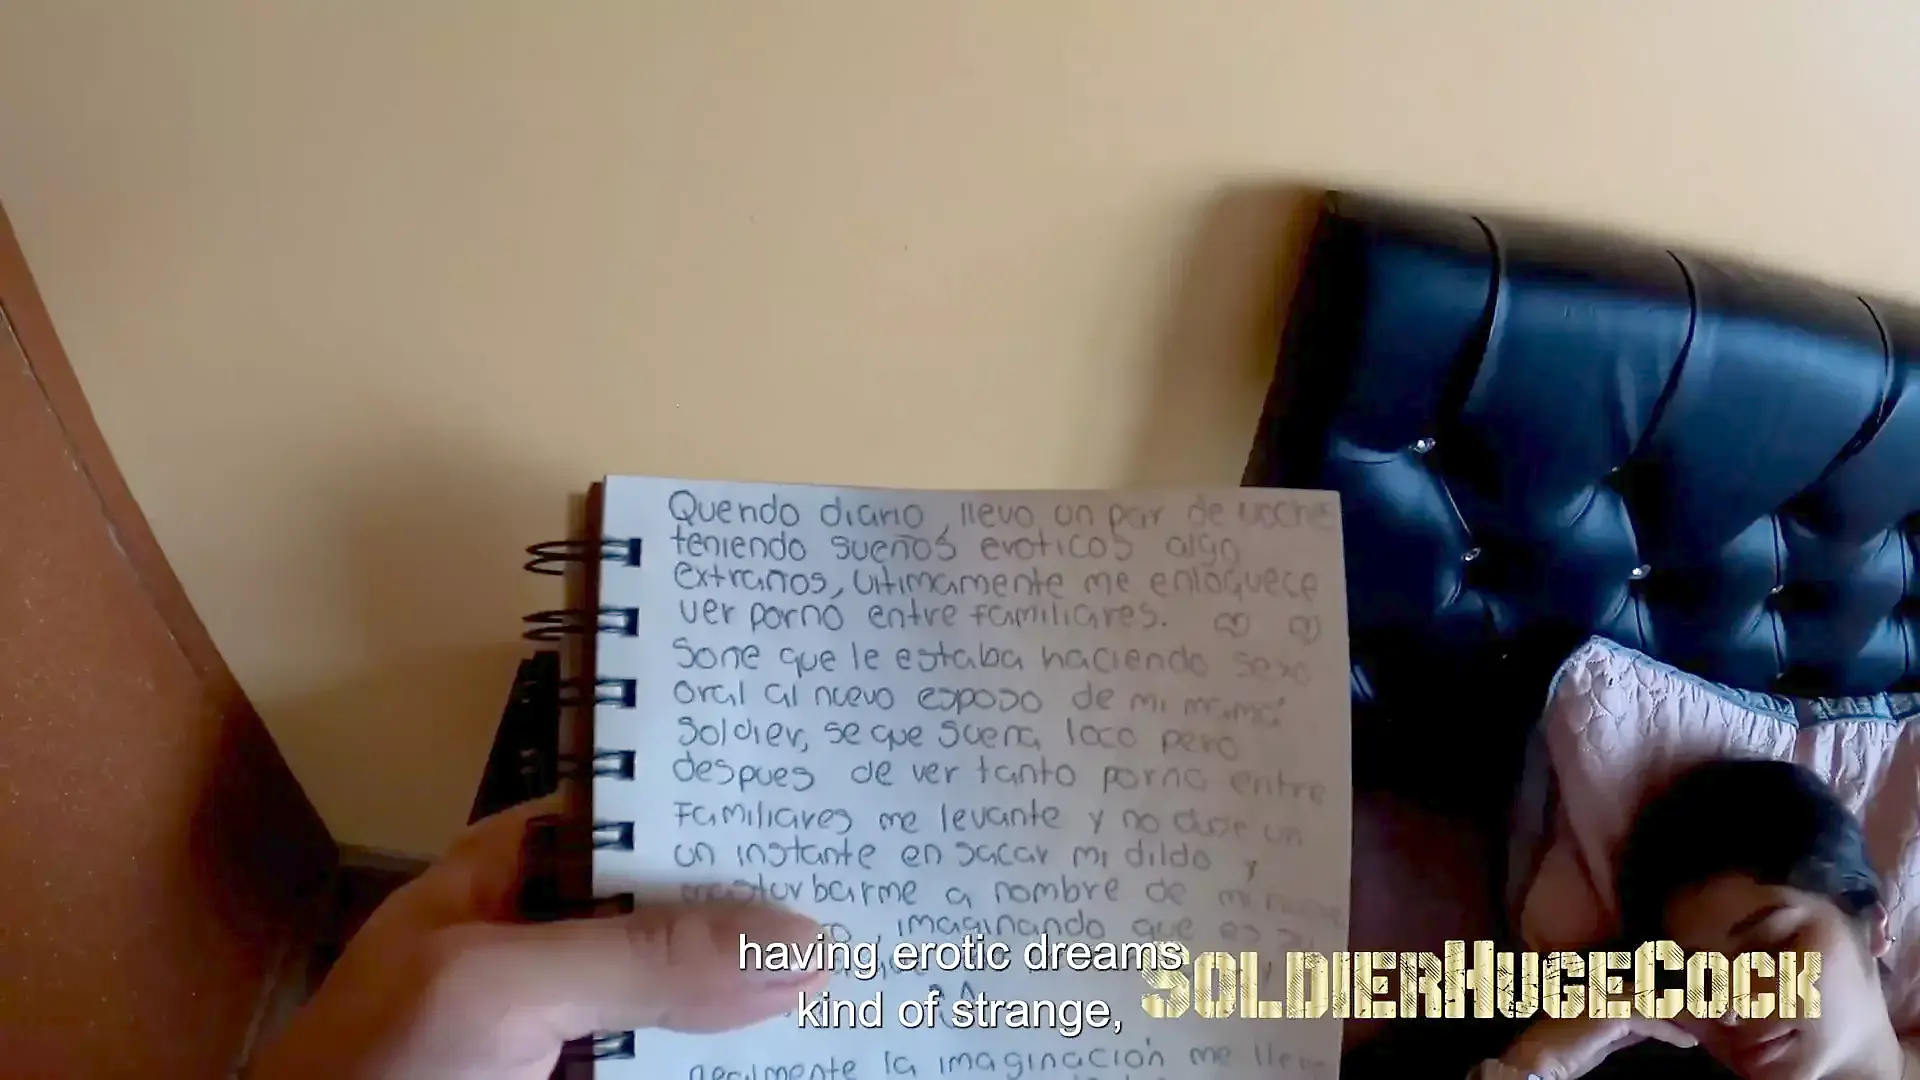 Quendo diario, llevo un par de noche
teniendo sueños eroticos algo
extraños, ultimamente me enloquece
ver porno entre familiares.
Soñe que le estaba haciendo sexo
oral al nuevo esposo de mi mamá
Soldier, se que suena loco pero
despues de ver tanto porno entre
Familiares me levante y no dude un
un instante en sacar mi dildo y
masturbarme a nombre de mi
imaginando que es
having erotic dreams
kind of strange,
SOLDIERHUGECOCK
la imaginación me